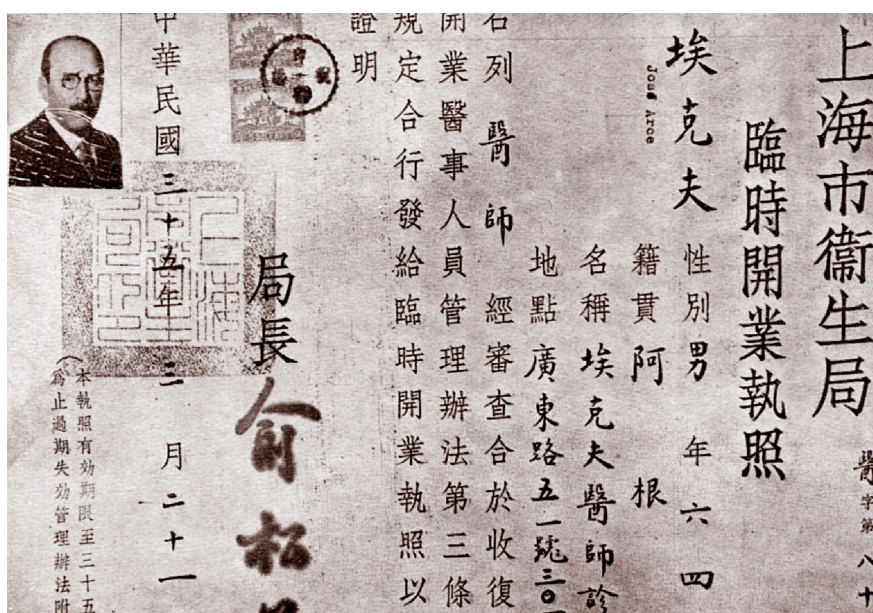 上海市衞生局
臨時開業執照
醫字第八十
埃克夫 性別男 年六四
José Arce
籍貫阿根
名稱埃克夫醫師診
地點廣東路五一號三〇
右列醫師經審查合於收復
開業醫事人員管理辦法第三條
規定合行發給臨時開業執照以
證明
局長俞松
中華民國三十五年三月二十一
本執照有効期限至三十五
爲止過期失効管理辦法附